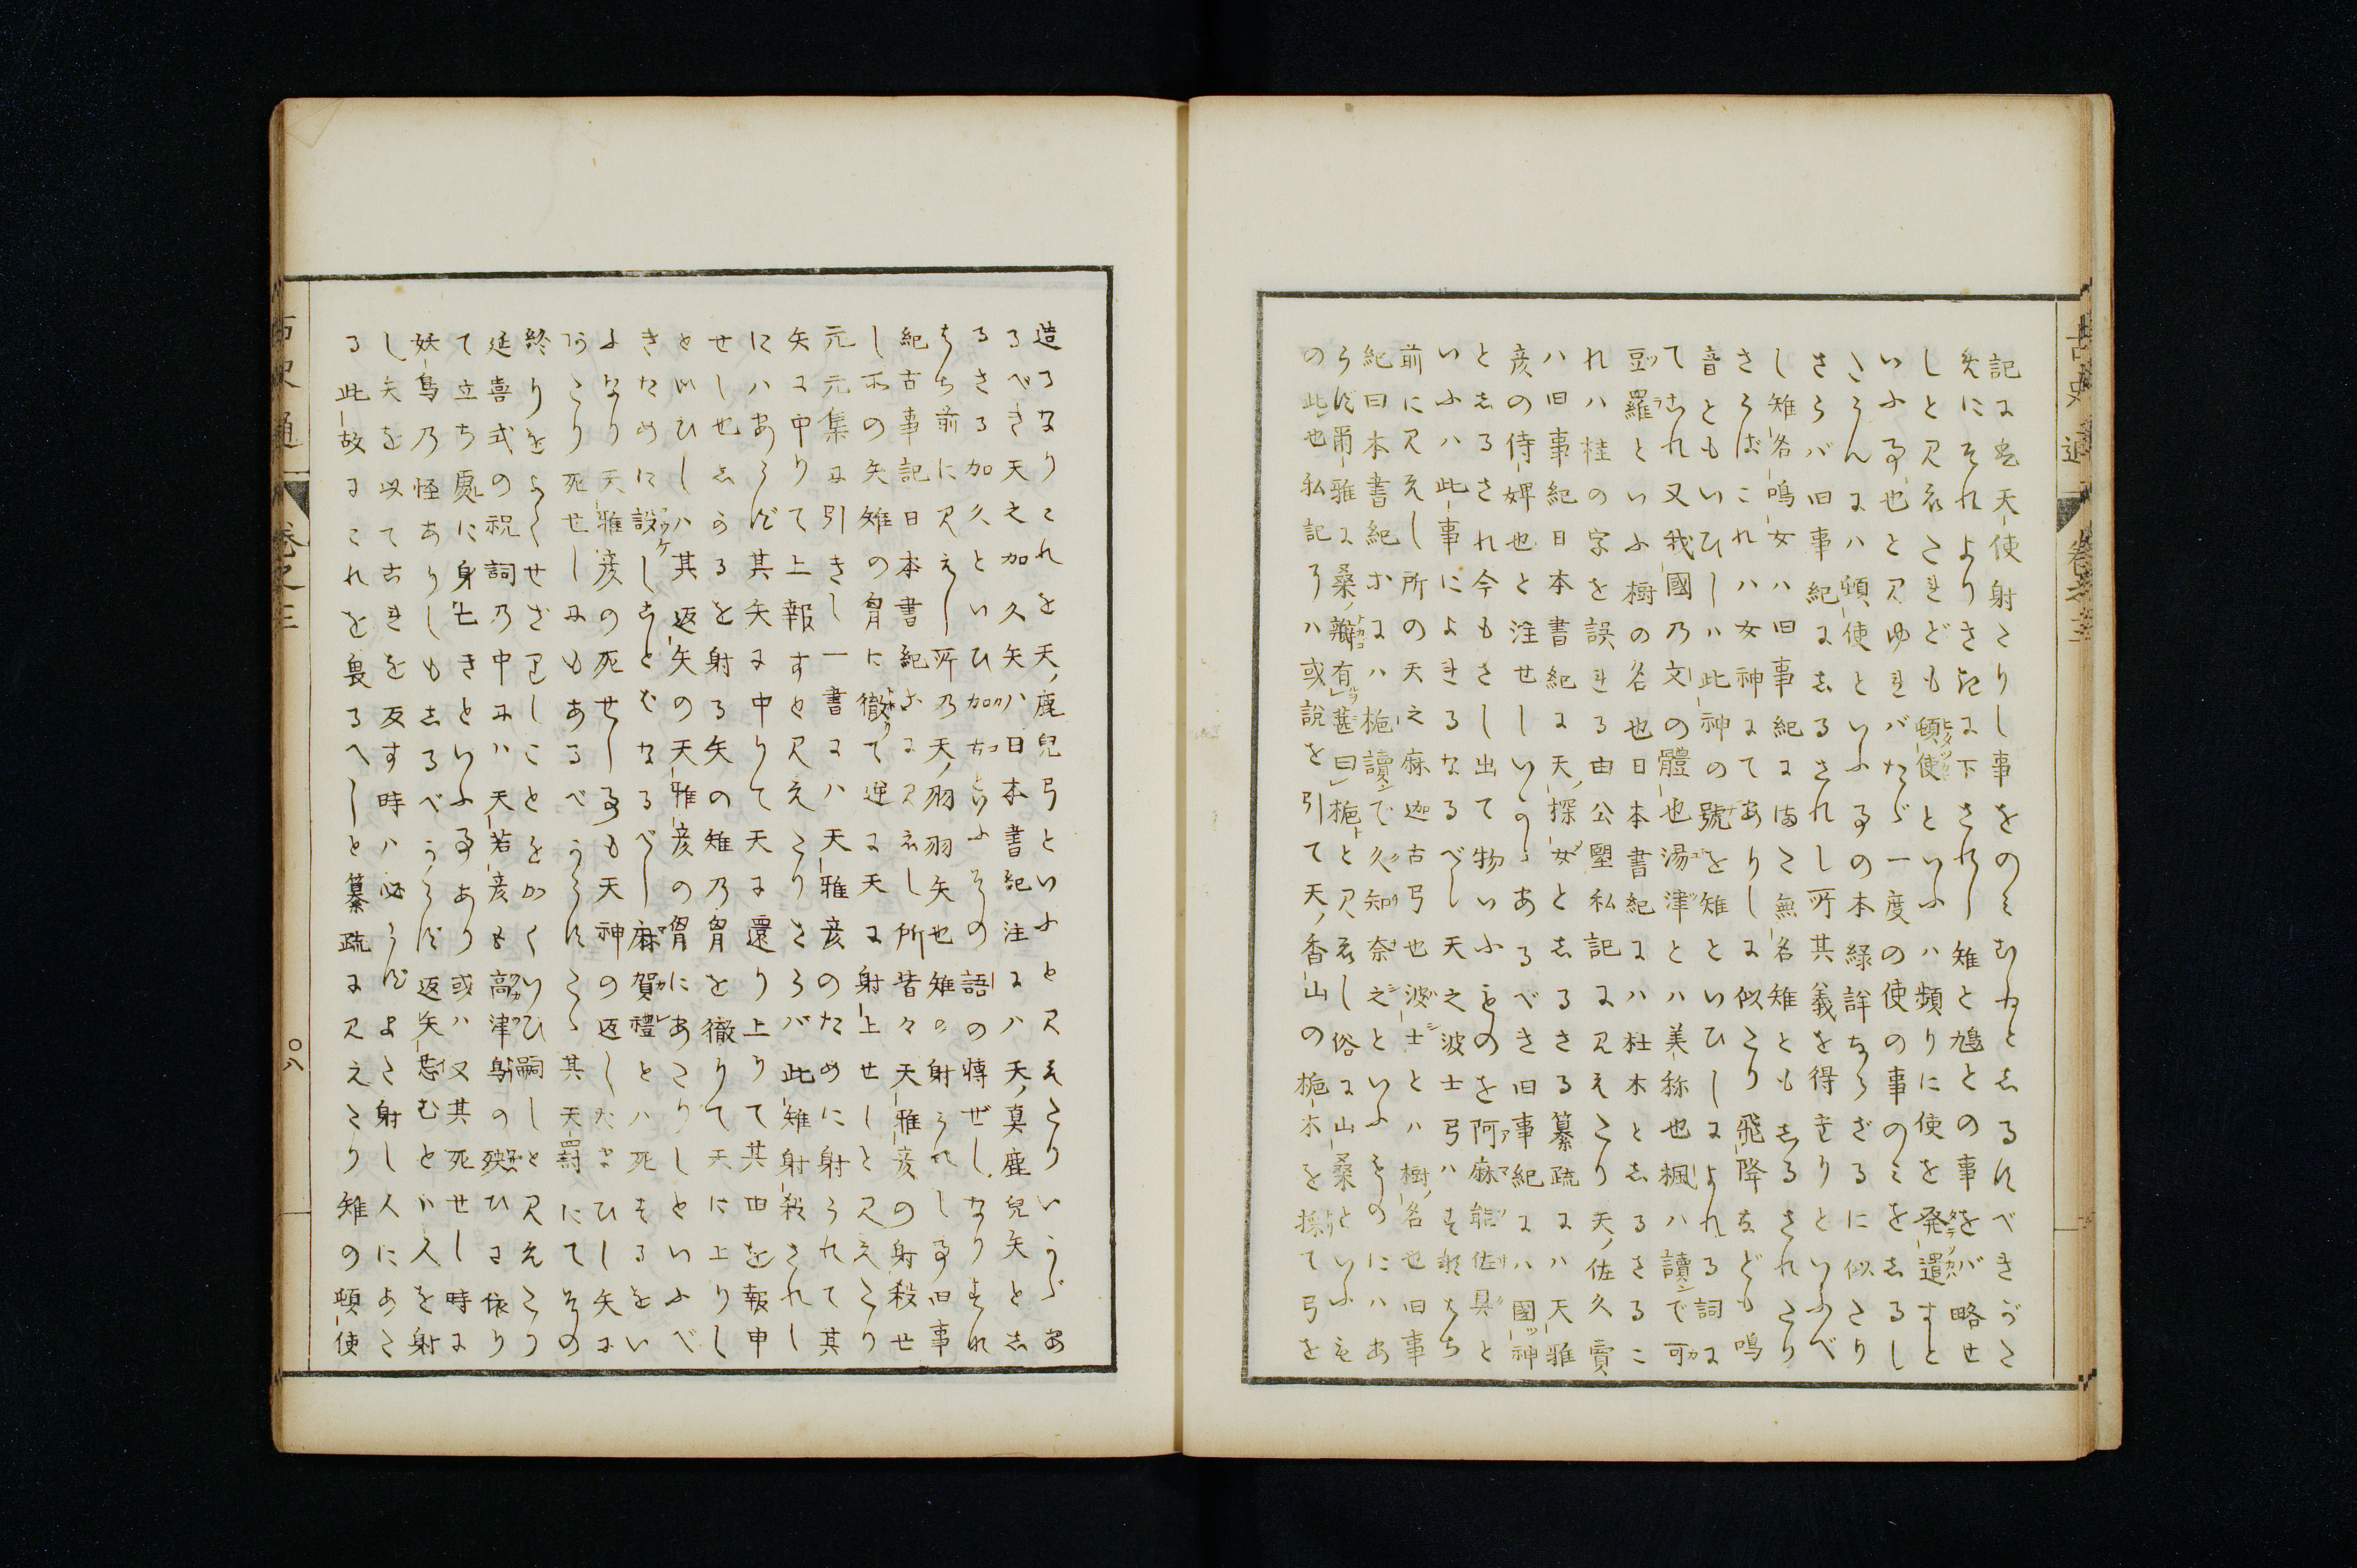 記に至天使射たりし事をのミむねとしるすべきがた
先にそれよりさきに下されし雉と鳩との事をバ略せ
しと見えたれども頓使といふハ頻りに使を発遣すと
いふ事也と見ゆれバたゞ一度の使の事のミをしるし
たらんにハ頓使といふ事の本縁詳ならざるに似たり
さらバ旧事紀にしるされし所其義を得たりといふべ
し雉名鳴女ハ旧事紀には無名雉ともしるされたり
さらばこれハ女神にてありしに似たり飛降なども鳴
音ともいひしハ此神の號を雉といひしによれる詞に
てあれ又我國乃文の體也湯津とハ美称也楓ハ讀で可
豆羅といふ樹の名也日本書紀にハ杜木としるさるこ
れハ桂の字を誤れる由公望私記に見えたり天ノ佐久賣
ハ旧事紀日本書紀に天ノ探女としるさる纂疏にハ天雅
彦の侍婢也と注せしいかゞあるべき旧事紀にハ國神
としるされ今もさし出て物いふものを阿麻能佐具と
いふハ此事によれるなるべし天之波士弓ハすなはち
前に見えし所の天之麻迦古弓也波士とハ樹ノ名也旧事
紀日本書紀にハ梔讀で久知奈之といふものにハあ
らず爾雅に桑ノ瓣有葚曰梔と見えし俗に山桑といふも
の此也私記にハ或說を引て天ノ香山の梔木を採て弓を
古史通 巻之三
造るなりこれを天ノ鹿兒弓といふと見えたりいかゞあ
るべき天之加久矢ハ日本書紀注にハ天ノ真鹿兒矢とし
るさる加久といひ加加といふその語の轉ぜしなりすなは
ち前に見えし所乃天ノ羽羽矢也雉の射られし事旧事
紀古事記日本書紀に見えし所皆々天雅彦の射殺せ
し所の矢雉の胷に徹りて逆に天に射上せしと見えたり
元元集に引きし一書にハ天雅彦のために射られて其
矢に中りて上報すと見えたりさらバ此雉射殺されし
にハあらず其矢に中りて天に還り上りて其由を報申
せし也しかるを射る矢の雉乃胷を徹りて天に上りし
といひしハ其返矢の天雅彦の胷にあたりしといふべ
きために設しことばなるべし麻賀禮とハ死するをい
ふなり天雅彦の死せし事も天神の返したまひし矢に
あたり死せしにもあるべからずたゞ其天罰にてその
終りをよくせざりしことをかくいひ嗣しと見えたり
延喜式の祝詞乃中にハ天若彦も高津鳥の殃ひに依り
て立ち處に身亡きといふ事あり或ハ又其死せし時に
妖鳥乃怪ありしもしるべからず返矢忌むとハ人を射
し矢を以て古きを反す時ハ必らずよく射し人にあた
る此故にこれを畏るへしと纂疏に見えたり雉の頓使
古史通 巻之三 八〇